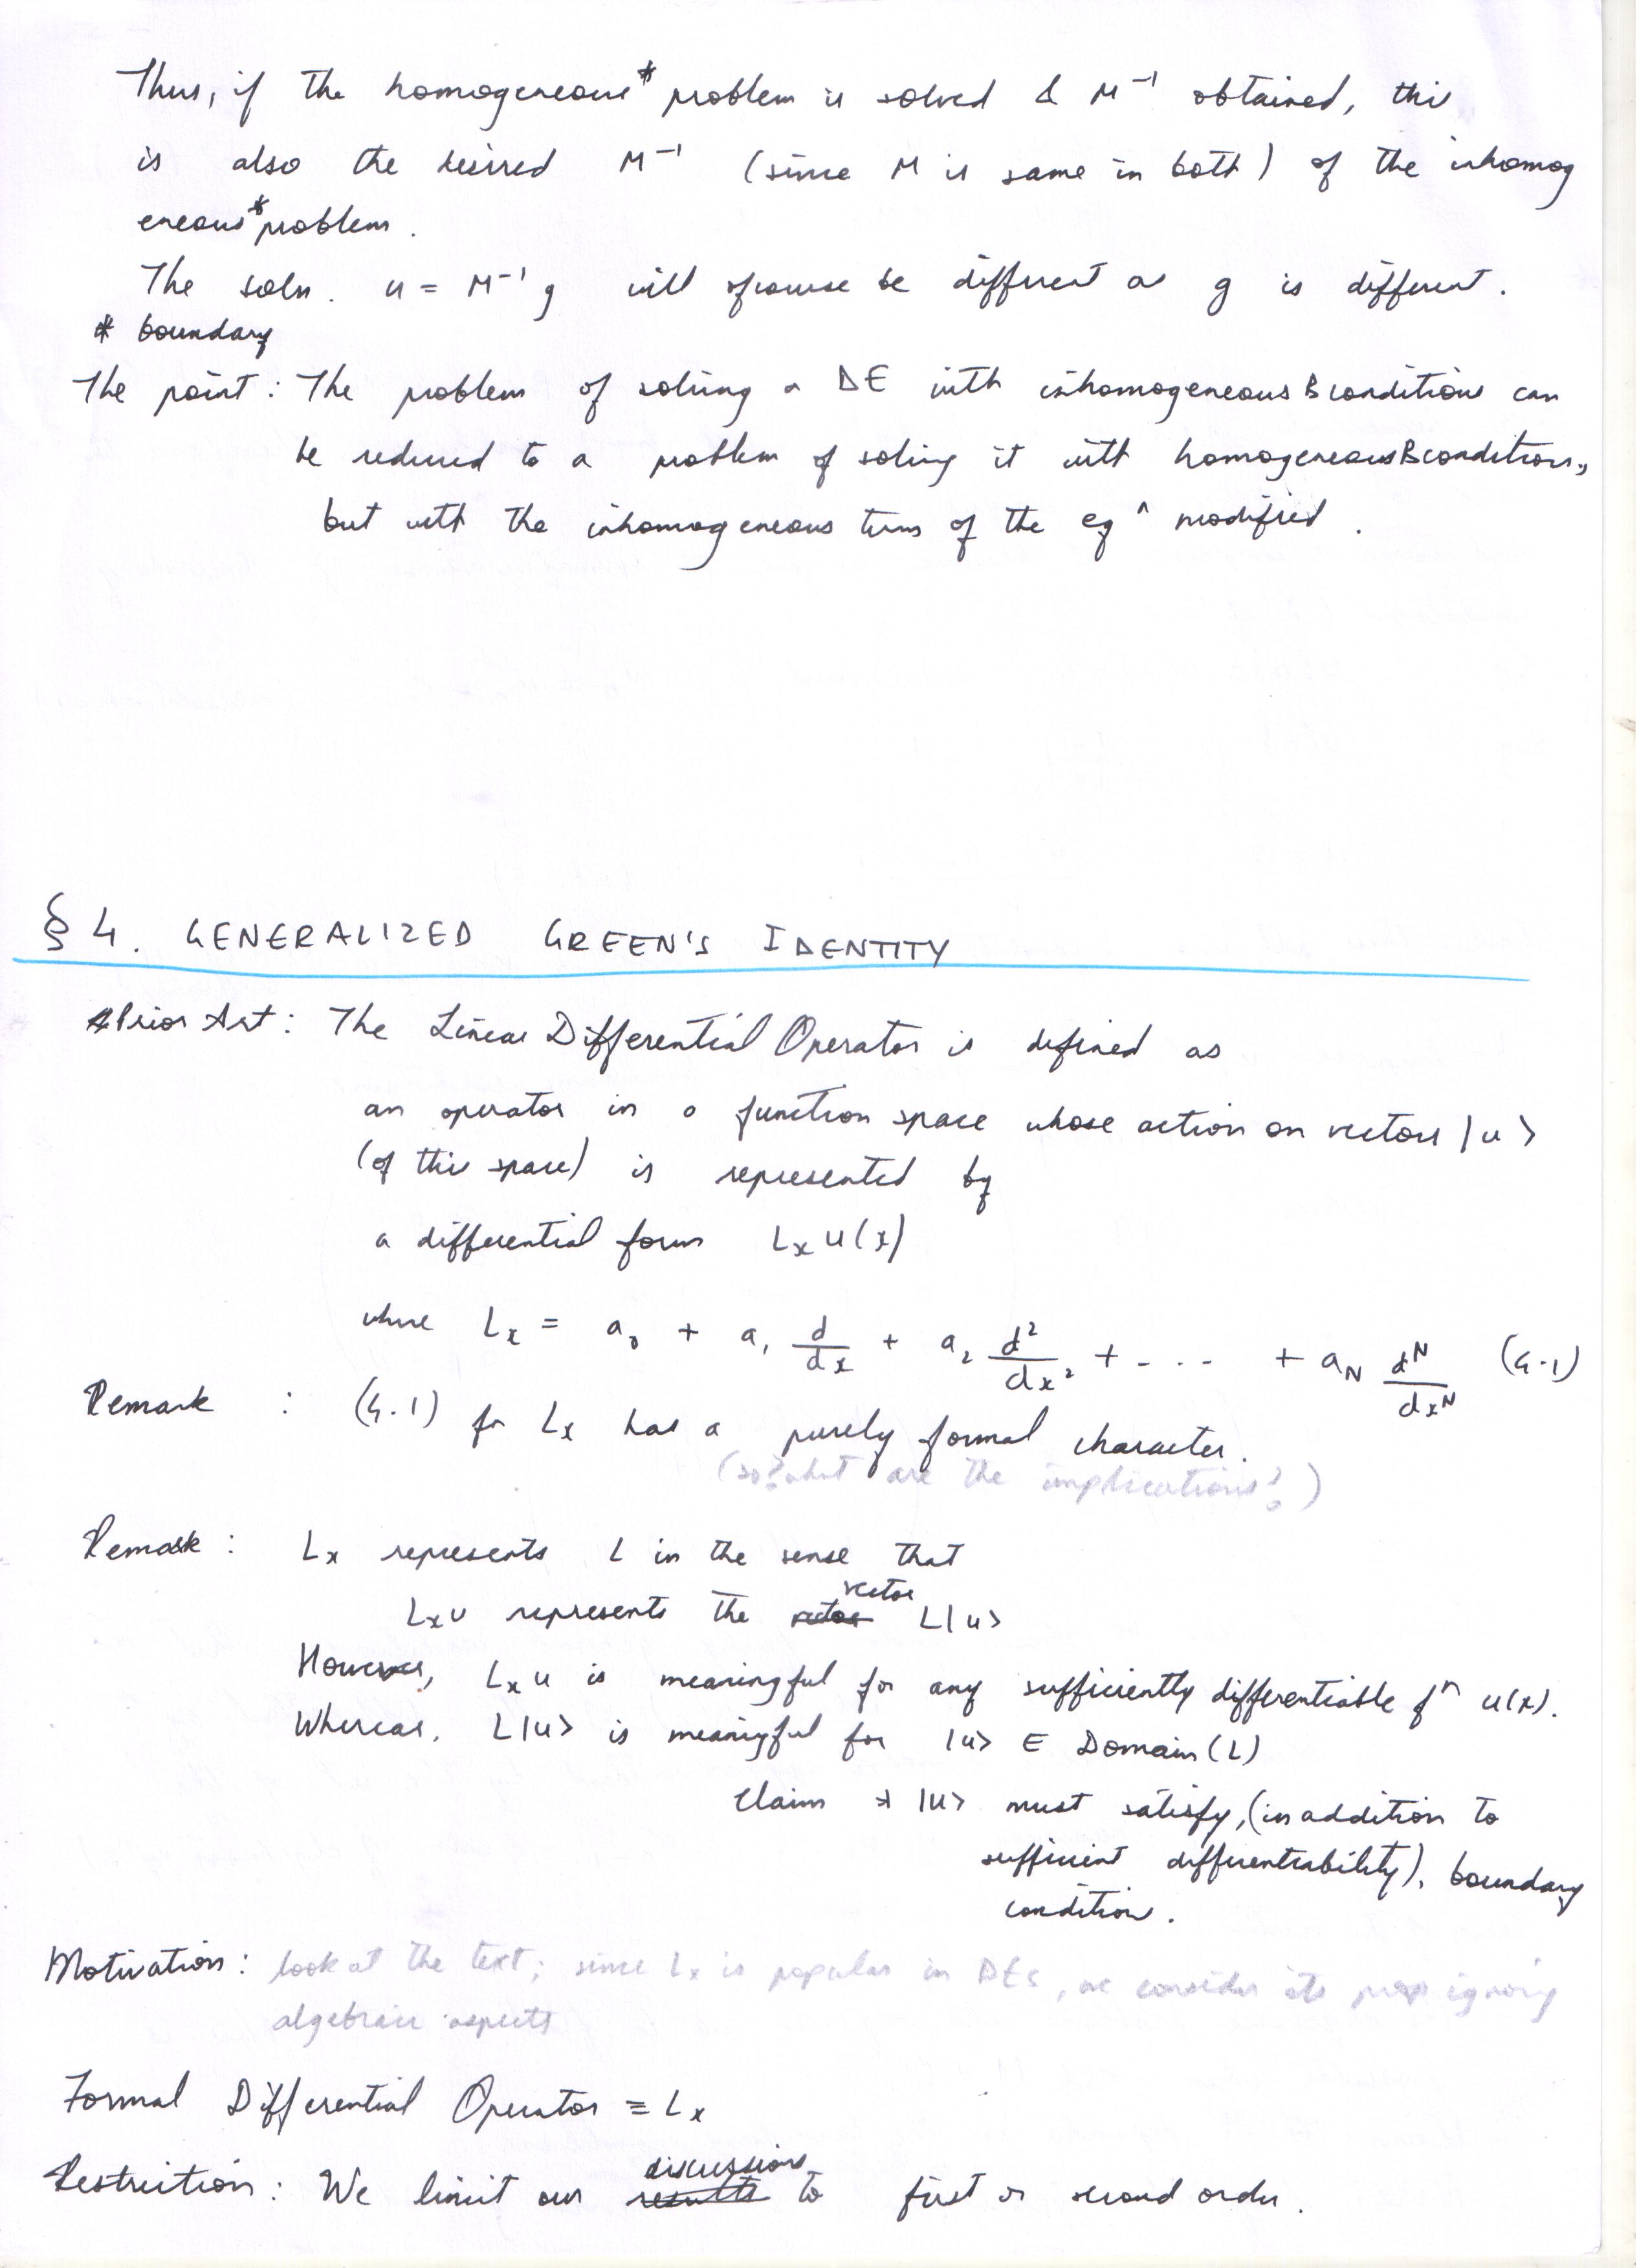 Thus, if the homogeneous* problem is solved & M⁻¹ obtained, this
is also the desired M⁻¹ (since M is same in both) of the inhomog
eneous* problem.
The soln. u = M⁻¹ g will ofcourse be different as g is different.
* boundary
The point: The problem of solving a DE with inhomogeneous B conditions can
be reduced to a problem of solving it with homogeneous B conditions,
but with the inhomogeneous term of the eqⁿ modified.
§ 4. GENERALIZED GREEN'S IDENTITY
Prior Art: The Linear Differential Operator is defined as
an operator in a function space whose action on vectors |u>
(of this space) is represented by
a differential form Lₓ u(x)
where Lₓ = a₀ + a₁ d/dx + a₂ d²/dx² + - ... + a_N d^N/dx^N (4.1)
Remark : (4.1) for Lₓ has a purely formal character.
(so? what are the implications?)
Remark : Lₓ represents L in the sense that
vector
Lₓu represents the L|u>
However, Lₓu is meaningful for any sufficiently differentiable fⁿ u(x).
Whereas, L|u> is meaningful for |u> ∈ Domain(L)
Claim |u> must satisfy, (in addition to
sufficient differentiability), boundary
condition.
Motivation: look at the text; since Lₓ is popular in DEs, we consider its prop ignoring
algebraic aspects
Formal Differential Operator ≡ Lₓ
discussions
Restriction: We limit our results to first or second order.